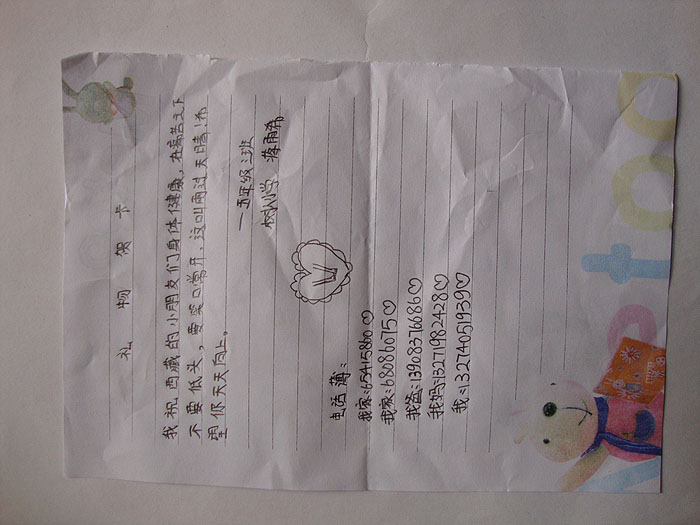 礼 物 贺 卡
我祝西藏的小朋友们身体健康,在蓝天之下
不要低头,要笑口常开,这叫雨过天晴!希
望你天天向上。
一五年级3班
树人小学 蒋雨希
电话薄:
我家:65415860♡
我家:68086075♡
我爸:13908376686♡
我妈:13271982428♡
我:13274051939♡
too